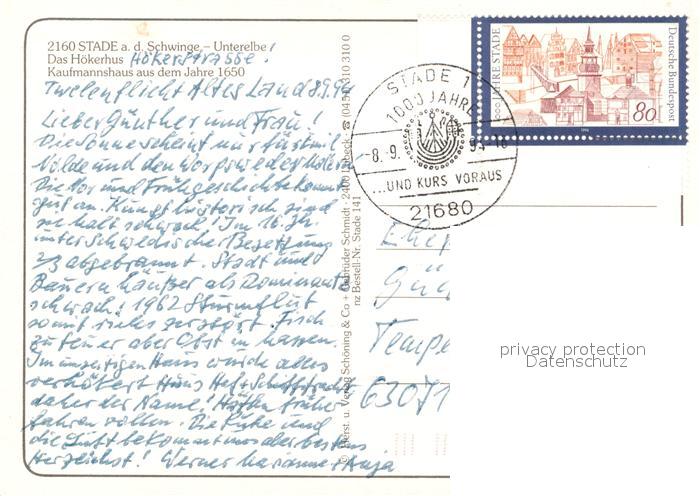 2160 STADE a. d. Schwinge – Unterelbe!
Das Hökerhus Hökerstrasse.
Kaufmannshaus aus dem Jahre 1650
Altes Land 8.9.94
Lieber Günther und Frau!
Die Sonne scheint nur für
Nolde und den Worpsweder Maler
Die Vor und Frühgeschichte kommt
gut an. Kunsthistorisch sind
sie halt schwach! Im 16. Jh.
unter Schwedischer Besetzung
2/3 abgebrannt. Stadt und
Bauernhäußer als Dominante
schwach! 1962 Sturmflut
somit vieles zerstört. Fisch
zu teuer aber Obst in Massen.
Im Haus wurde alles
verhökert
daher der Name!
fahren wollen. Die Ruhe und
die Luft bekommt uns aber bestens
Herzlichst! Werner Marianne + Anja
© Herst. u. Verlag Schöning & Co + Gebrüder Schmidt · 2400 Lübeck · ☎ (0451) 310 310 0
nz Bestell-Nr. Stade 141
STADE 1
1000 JAHRE
8. 9. 94-18
...UND KURS VORAUS
21680
1000 JAHRE STADE
Deutsche Bundespost
80
1994
Gü
Tempe
63071
privacy protection
Datenschutz